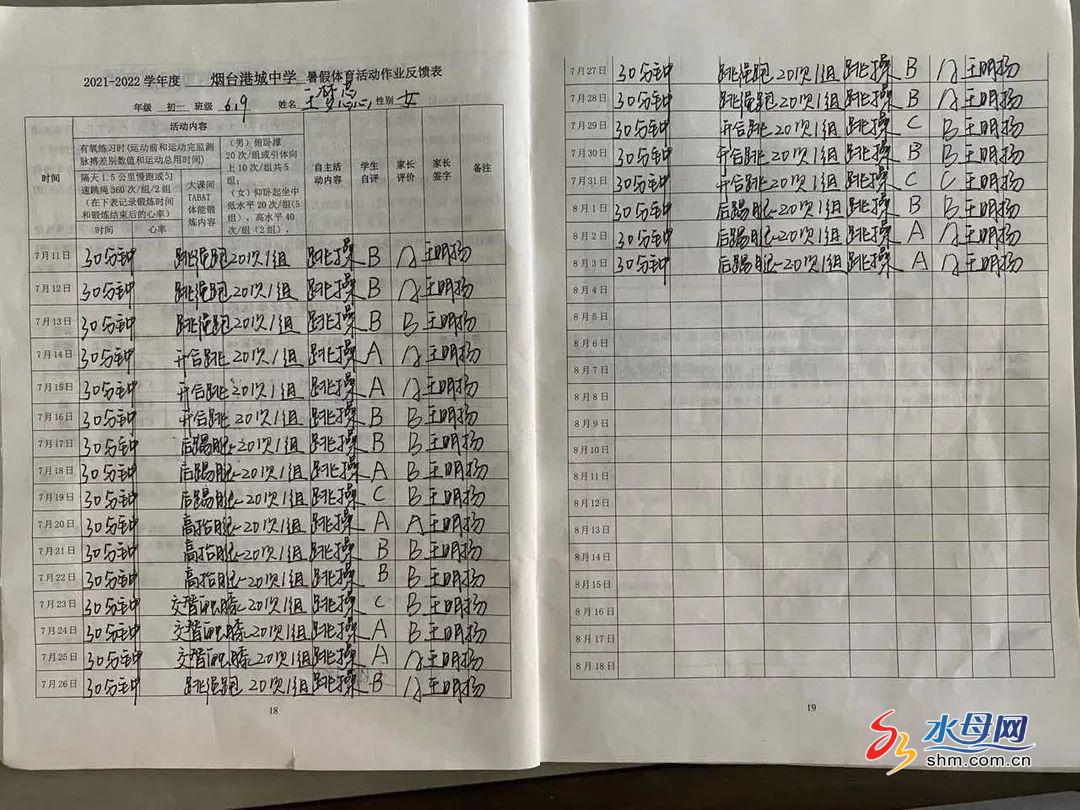 2021-2022 学年度 烟台港城中学 暑假体育活动作业反馈表
年级 初一 班级 6.19 姓名 王梦 性别 女
时间 活动内容 自主活动内容 学生自评 家长评价 家长签字 备注
有氧练习时(运动前和运动完监测脉搏差别数值和运动总用时间)
隔天 1.5 公里慢跑或匀速跳绳 360 次/组/2 组(在下表记录锻炼时间和锻炼结束后的心率)
时间 心率
大课间 TABAT 体能锻炼内容
(男)俯卧撑 20 次/组或引体向上 10 次/组共 5 组;
(女)仰卧起坐中低水平 20 次/组(5 组),高水平 40 次/组(2 组)。
7月11日 30分钟 跳绳跑20次1组 跳操 B A 王明扬
7月12日 30分钟 跳绳跑20次1组 跳操 B A 王明扬
7月13日 30分钟 跳绳跑20次1组 跳操 B B 王明扬
7月14日 30分钟 开合跳20次1组 跳操 A A 王明扬
7月15日 30分钟 开合跳20次1组 跳操 A A 王明扬
7月16日 30分钟 开合跳20次1组 跳操 B B 王明扬
7月17日 30分钟 后踢腿20次1组 跳操 B B 王明扬
7月18日 30分钟 后踢腿20次1组 跳操 A B 王明扬
7月19日 30分钟 后踢腿20次1组 跳操 C B 王明扬
7月20日 30分钟 高抬腿20次1组 跳操 A A 王明扬
7月21日 30分钟 高抬腿20次1组 跳操 B B 王明扬
7月22日 30分钟 高抬腿20次1组 跳操 B B 王明扬
7月23日 30分钟 交替触膝20次1组 跳操 C B 王明扬
7月24日 30分钟 交替触膝20次1组 跳操 A B 王明扬
7月25日 30分钟 交替触膝20次1组 跳操 A A 王明扬
7月26日 30分钟 跳绳跑20次1组 跳操 B A 王明扬
18
7月27日 30分钟 跳绳跑20次1组 跳操 B A 王明扬
7月28日 30分钟 跳绳跑20次1组 跳操 B A 王明扬
7月29日 30分钟 开合跳20次1组 跳操 C B 王明扬
7月30日 30分钟 开合跳20次1组 跳操 B B 王明扬
7月31日 30分钟 开合跳20次1组 跳操 C C 王明扬
8月1日 30分钟 后踢腿20次1组 跳操 B B 王明扬
8月2日 30分钟 后踢腿20次1组 跳操 A A 王明扬
8月3日 30分钟 后踢腿20次1组 跳操 A A 王明扬
8月4日
8月5日
8月6日
8月7日
8月8日
8月9日
8月10日
8月11日
8月12日
8月13日
8月14日
8月15日
8月16日
8月17日
8月18日
19
水母网
shm.com.cn